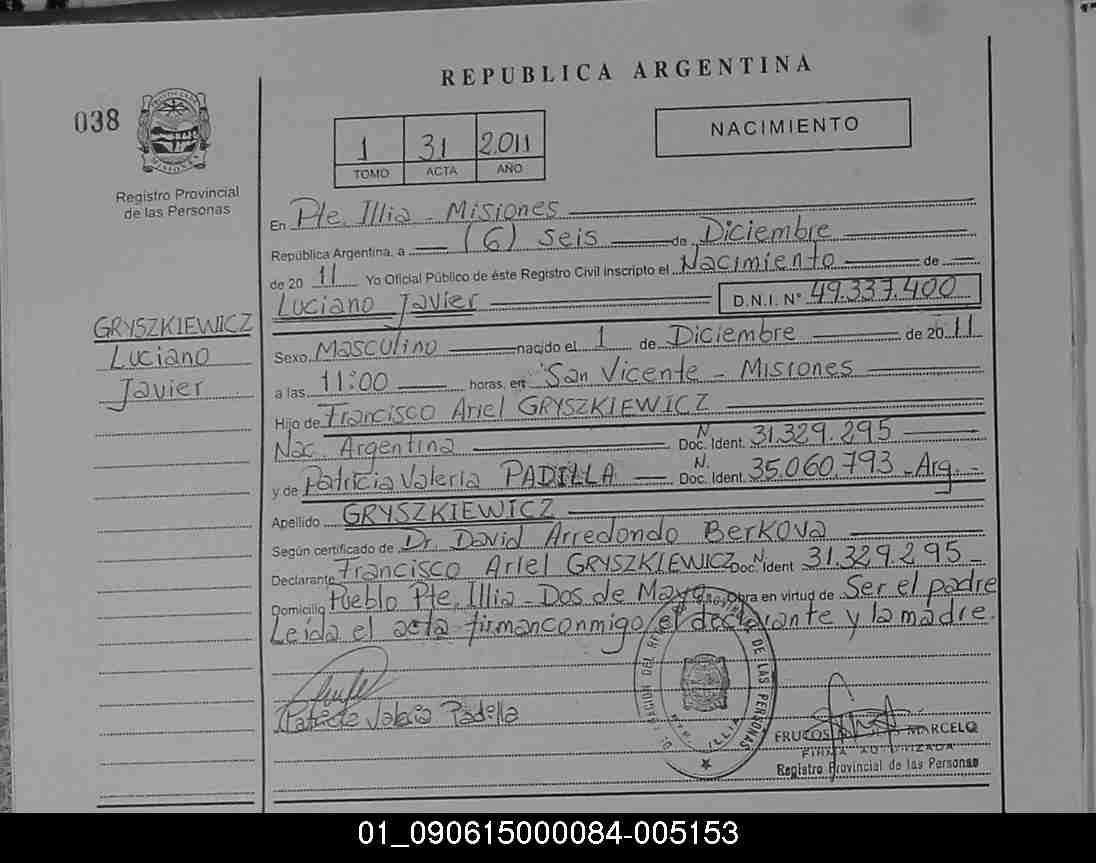 REPUBLICA ARGENTINA
038
Registro Provincial
de las Personas
1 31 2.011
TOMO ACTA AÑO
NACIMIENTO
GRYSZKIEWICZ
Luciano
Javier
En Pte. Illia - Misiones
República Argentina, a (6) seis de Diciembre
de 20 11 Yo Oficial Público de éste Registro Civil inscripto el Nacimiento de
Luciano Javier D.N.I. N° 49.337.400
Sexo Masculino nacido el 1 de Diciembre de 20 11
a las 11:00 horas, en San Vicente - Misiones
Hijo de Francisco Ariel GRYSZKIEWICZ
Nac. Argentina Doc. N. Ident. 31.329.295
y de Patricia Valeria PADILLA Doc. N. Ident. 35.060.793 - Arg. -
Apellido GRYSZKIEWICZ
Según certificado de Dr. David Arredondo Berkova
Declarante Francisco Ariel GRYSZKIEWICZ Doc. N. Ident 31.329.295 -
Domicilio Pueblo Pte. Illia - Dos de Mayo Obra en virtud de Ser el padre
Leída el acta firman conmigo el declarante y la madre.
Patricia Valeria Padilla
DE LAS PERSONAS
ILLIA
MARCELO
FIRMA AUTORIZADA
Registro Provincial de las Personas
01_090615000084-005153